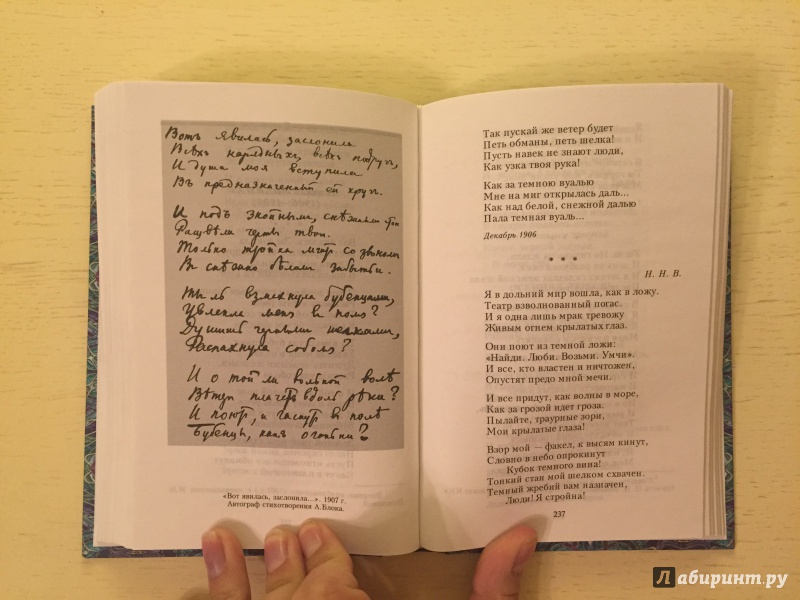 Вотъ явилась, заслонила
Всѣхъ нарядныхъ, всѣхъ подругъ,
И душа моя вступила
Въ предназначенный ей кругъ.
И подъ знойнымъ, снѣжнымъ
Расцвѣли черты твои.
Только тройка мчитъ со звономъ
Въ снѣжно бѣломъ забытьи.
Ты ль взмахнула бубенцами,
Увлекла меня въ поля?
Душишь черными шелками,
Распахнула соболя?
И о той ли вольной волѣ
Вѣтеръ плачетъ вдоль рѣки?
И поютъ, и гаснутъ въ полѣ
Бубенцы, огоньки?
«Вот явилась, заслонила...». 1907 г.
Автограф стихотворения А.Блока.
Так пускай же ветер будет
Петь обманы, петь шелка!
Пусть навек не знают люди,
Как узка твоя рука!
Как за темною вуалью
Мне на миг открылась даль...
Как над белой, снежной далью
Пала темная вуаль...
Декабрь 1906
* * *
Н. Н. В.
Я в дольний мир вошла, как в ложу.
Театр взволнованный погас.
И я одна лишь мрак тревожу
Живым огнем крылатых глаз.
Они поют из темной ложи:
«Найди. Люби. Возьми. Умчи».
И все, кто властен и ничтожен,
Опустят предо мной мечи.
И все придут, как волны в море,
Как за грозой идет гроза.
Пылайте, траурные зори,
Мои крылатые глаза!
Взор мой — факел, к высям кинут,
Словно в небо опрокинут
Кубок темного вина!
Тонкий стан мой шелком схвачен.
Темный жребий вам назначен,
Люди! Я стройна!
237
Лабиринт.ру